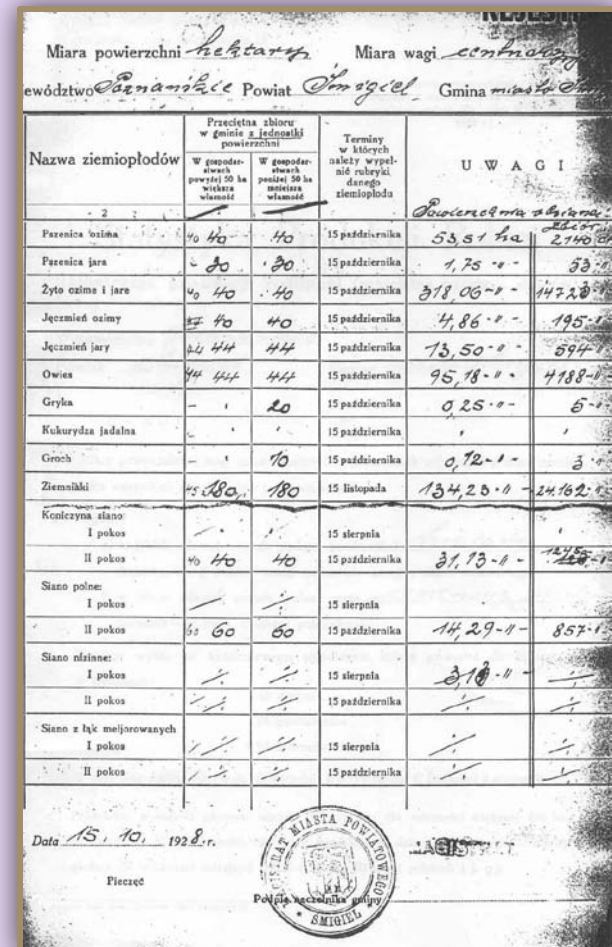 REJEST
Miara powierzchni hektary Miara wagi centnary
ewództwo Poznańskie Powiat Śmigiel Gmina miasto
Nazwa ziemiopłodów
2
Przeciętna zbioru
w gminie z jednostki
powierzchni
W gospodar-
stwach
powyżej 50 ha
większa
własność
W gospodar-
stwach
poniżej 50 ha
mniejsza
własność
Terminy
w których
należy wypeł-
nić rubryki
danego
ziemiopłodu
UWAGI
Powierzchnia zbiór
Pszenica ozima 40 40 40 15 października 53,51 ha 2140
Pszenica jara - 30 30 15 października 1,75 -"- 53
Żyto ozime i jare 40 40 40 15 października 318,06 -"-
Jęczmień ozimy 40 40 15 października 4,86 -"- 195 -"-
Jęczmień jary 44 44 44 15 października 13,50 -"- 594 -"-
Owies 44 44 44 15 października 95,18 -"- 4188 -"-
Gryka - 20 15 października 0,25 -"- 5 -"-
Kukurydza jadalna 15 października
Groch - 10 15 października 0,12 -"- 3 -"-
Ziemniaki 45 180 180 15 listopada 134,23 -"- 24.162 -"-
Koniczyna siano:
I pokos 15 sierpnia
II pokos 40 40 40 15 października 31,13 -"- 1245
Siano polne:
I pokos 15 sierpnia
II pokos 60 60 60 15 października 14,29 -"- 857 -"-
Siano nizinne:
I pokos 15 sierpnia
II pokos 15 października
Siano z łąk meljorowanych
I pokos 15 sierpnia
II pokos 15 października
Data 15. 10. 1928.r.
MAGISTRAT
MAGISTRAT MIASTA POWIATOWEGO
ŚMIGIEL
Pieczęć
Podpis naczelnika gminy